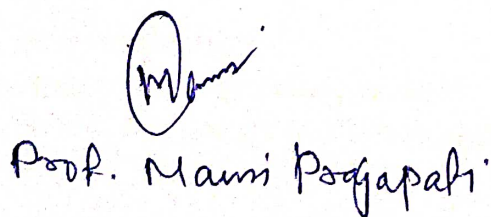 Mansi
Prof. Mansi Prajapati